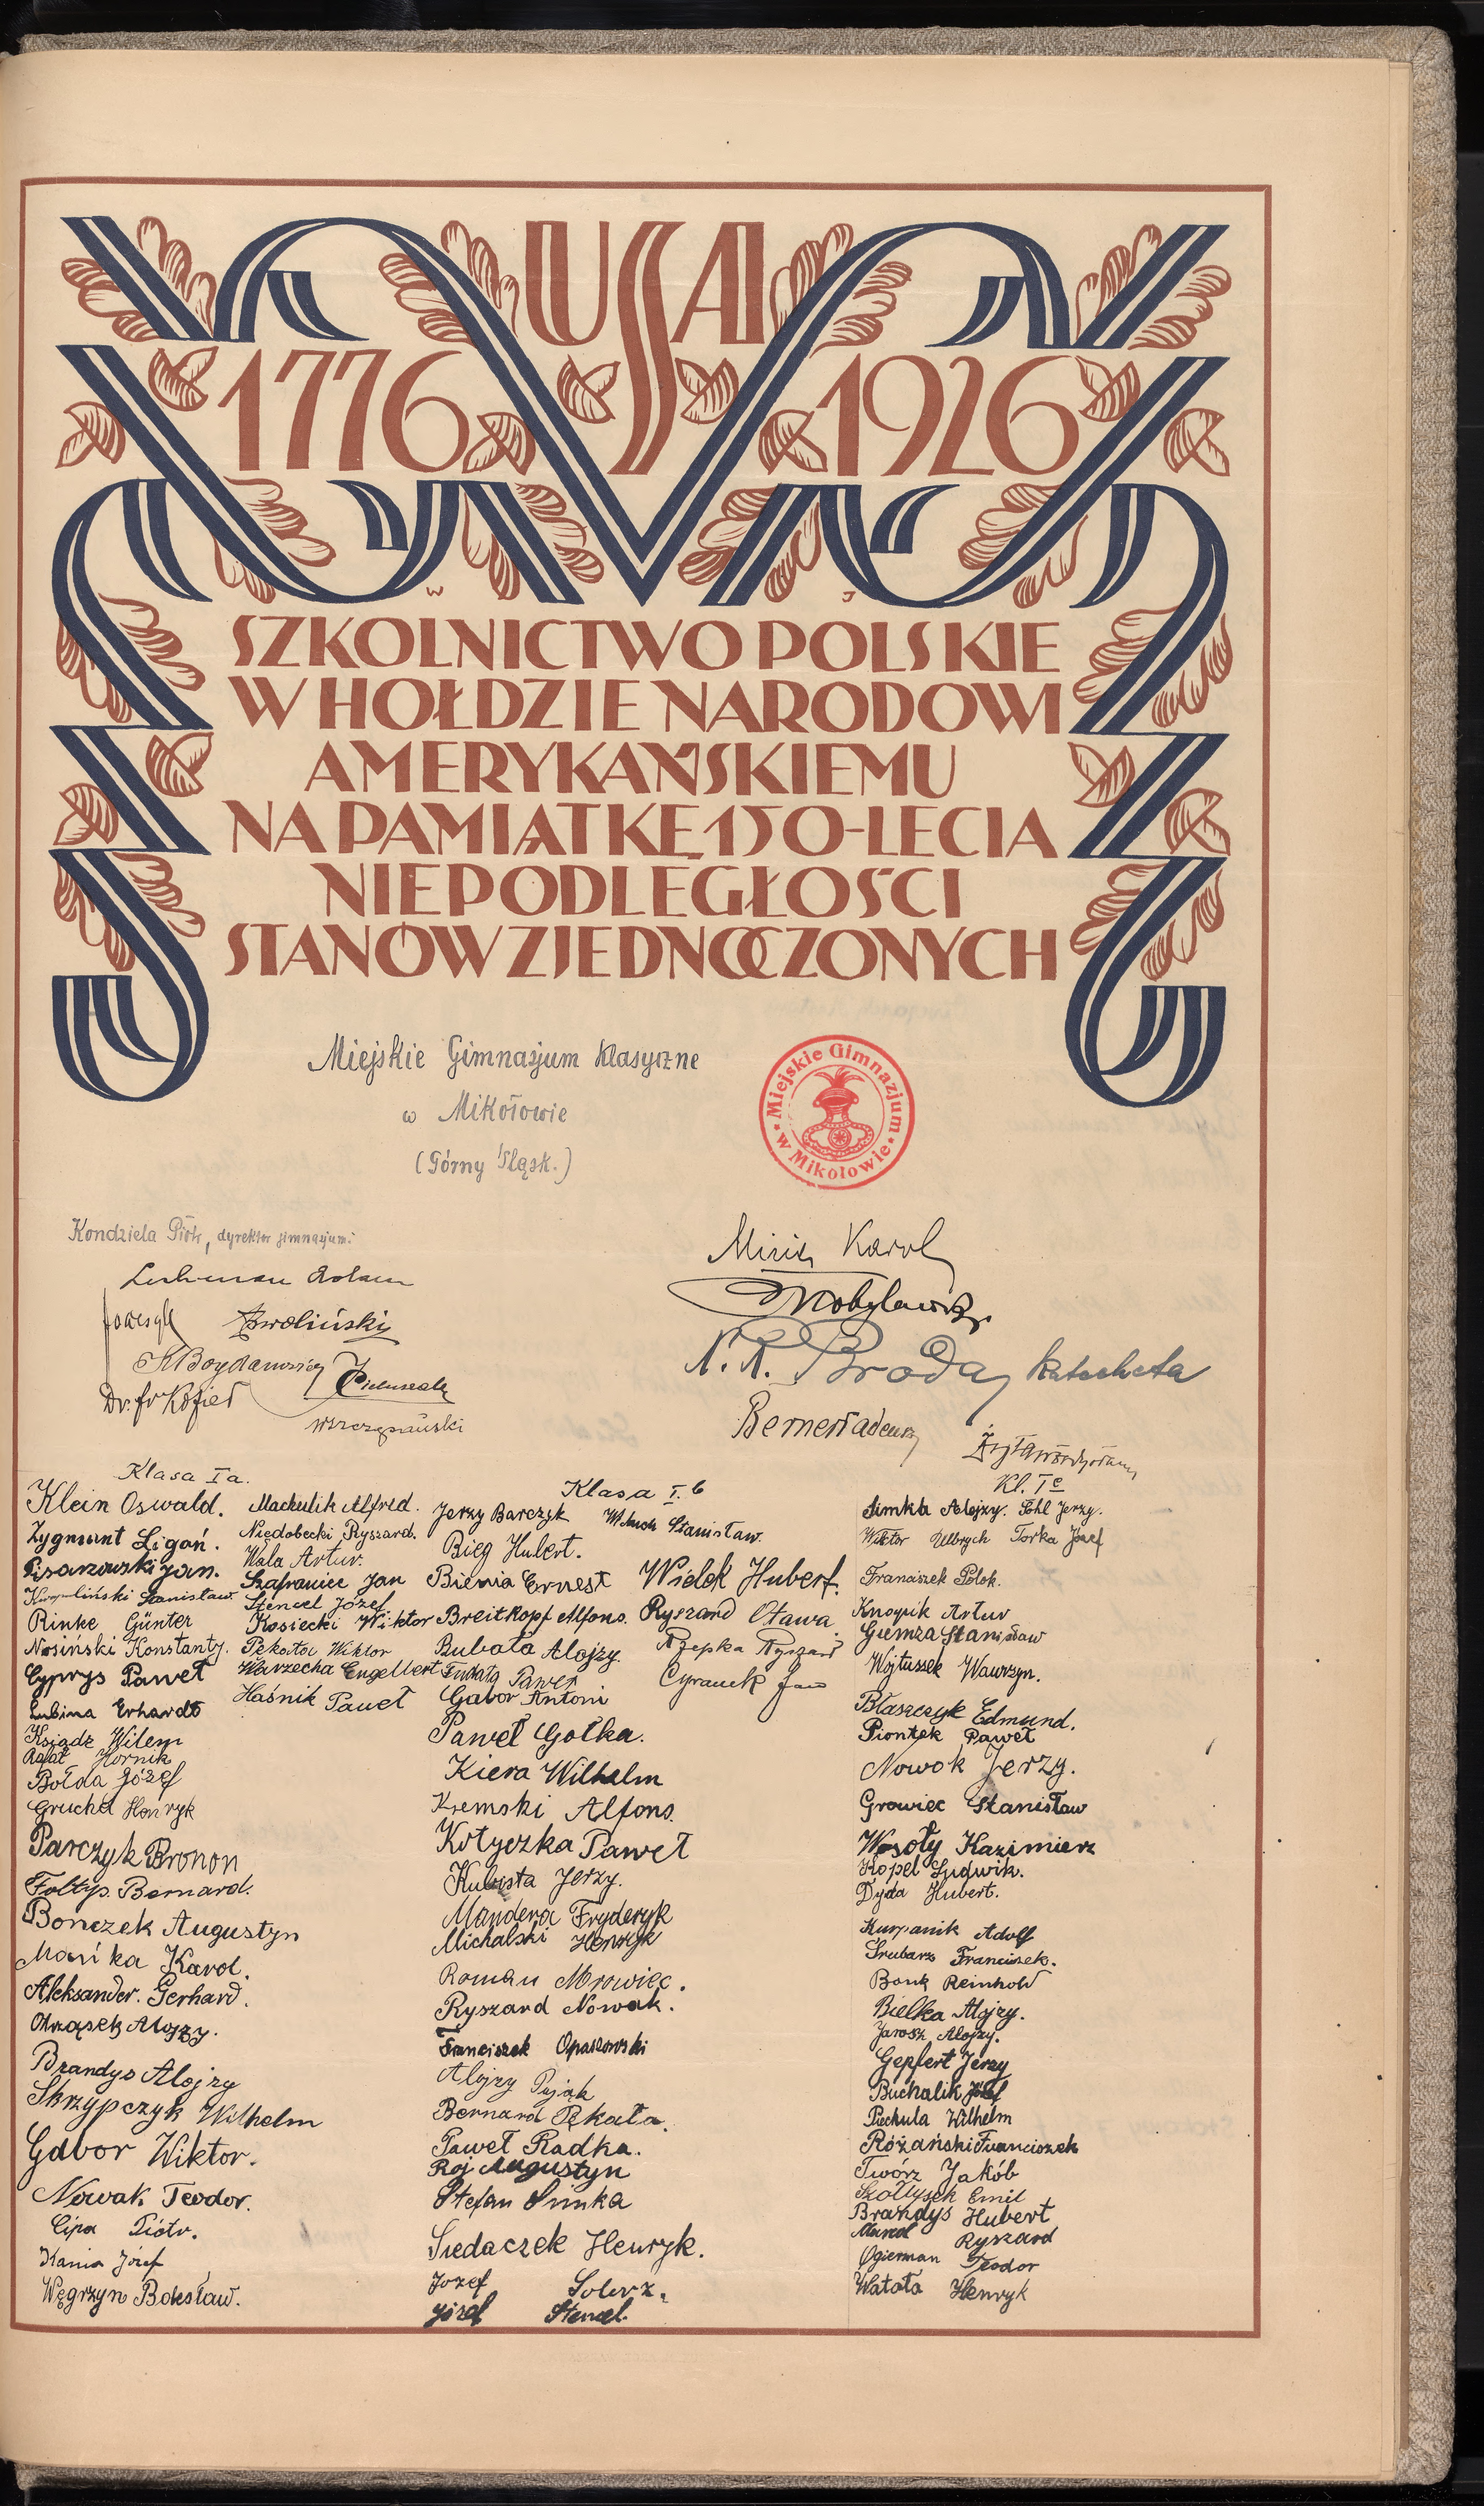 USA
1776 1926
W J
SZKOLNICTWO POLSKIE
W HOŁDZIE NARODOWI
AMERYKAŃSKIEMU
NA PAMIĄTKĘ 150-LECIA
NIEPODLEGŁOŚCI
STANÓW ZJEDNOCZONYCH
Miejskie Gimnazjum Klasyczne
w Mikołowie
(Górny Śląsk.)
Miejskie Gimnazjum w Mikołowie
Kondziela Piotr, dyrektor gimnazjum:
Zwoliński
K Bogdanowicz
Dr. fr Kozieł
WSzczepański
Karol
X. R. Broda, Katecheta
Klasa I a.
Klein Oswald.
Zygmunt Ligoń.
Pisarzowski Jan.
Stanisław.
Rinke Günter
Nosiński Konstanty.
Cyprys Paweł
Lubina Erhardt
Ksiądz Wilem
Rafał Hornik
Bołda Józef
Grucha Henryk
Parczyk Bronon
Foltyp. Bernard.
Bonczek Augustyn
Mańka Karol.
Aleksander. Gerhard.
Alojzy.
Brandys Alojzy
Skrzypczyk Wilhelm
Gabor Wiktor.
Nowak Teodor.
Cipa Piotr.
Kania Józef
Węgrzyn Bolesław.
Machulik Alfred.
Niedobecki Ryszard.
Wala Artur.
Szafraniec Jan
Stencel Józef
Kosiecki Wiktor
Pękata Wiktor
Warzecha Engelbert
Haśnik Paweł
Klasa I. b
Jerzy Barczyk
Bieg Hubert.
Bienia Ernest
Breitkopf Alfons.
Bubała Alojzy.
Paweł
Gabor Antoni
Paweł Gołka.
Kiera Wilhelm
Kremski Alfons.
Kotyczka Paweł
Kubista Jerzy.
Mandera Fryderyk
Michalski Henryk
Roman Mrowiec.
Ryszard Nowak.
Franciszek Opaszowski
Alojzy Pająk
Bernard Pękała.
Paweł Radka.
Roj Augustyn
Stefan Simka
Siedaczek Henryk.
Józef Solorz.
Józef Stencel.
Stanisław.
Widek Hubert.
Ryszard Otawa.
Rzepka Ryszard
Cyranek Jan
Kl. I c
Simka Alojzy. Sohl Jerzy.
Wiktor Ulbrych Torka Józef
Franciszek Polok.
Knopik Artur
Giemza Stanisław
Wojtussek Wawrzyn.
Błaszczyk Edmund.
Piontek Paweł
Nowok Jerzy.
Growiec Stanisław
Wesoły Kazimierz
Kopel Ludwik.
Dyda Hubert.
Kurpanik Adolf
Srubarz Franciszek.
Bonk Reinhold
Bielka Alojzy.
Jarosz Alojzy.
Gepfert Jerzy
Buchalik Józef
Piechula Wilhelm
Różański Franciszek
Twórz Jakób
Szołtysek Emil
Brandys Hubert
Ryszard
Ogierman Teodor
Watoła Henryk